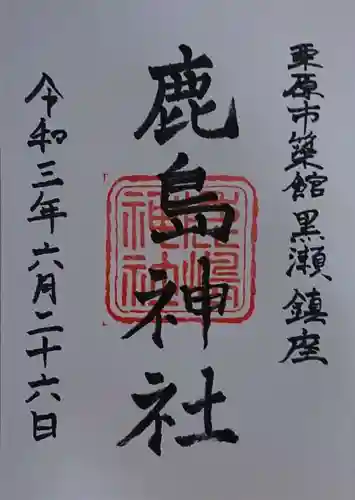 栗原市築館黒瀬鎮座
鹿島神社
令和三年六月二十六日